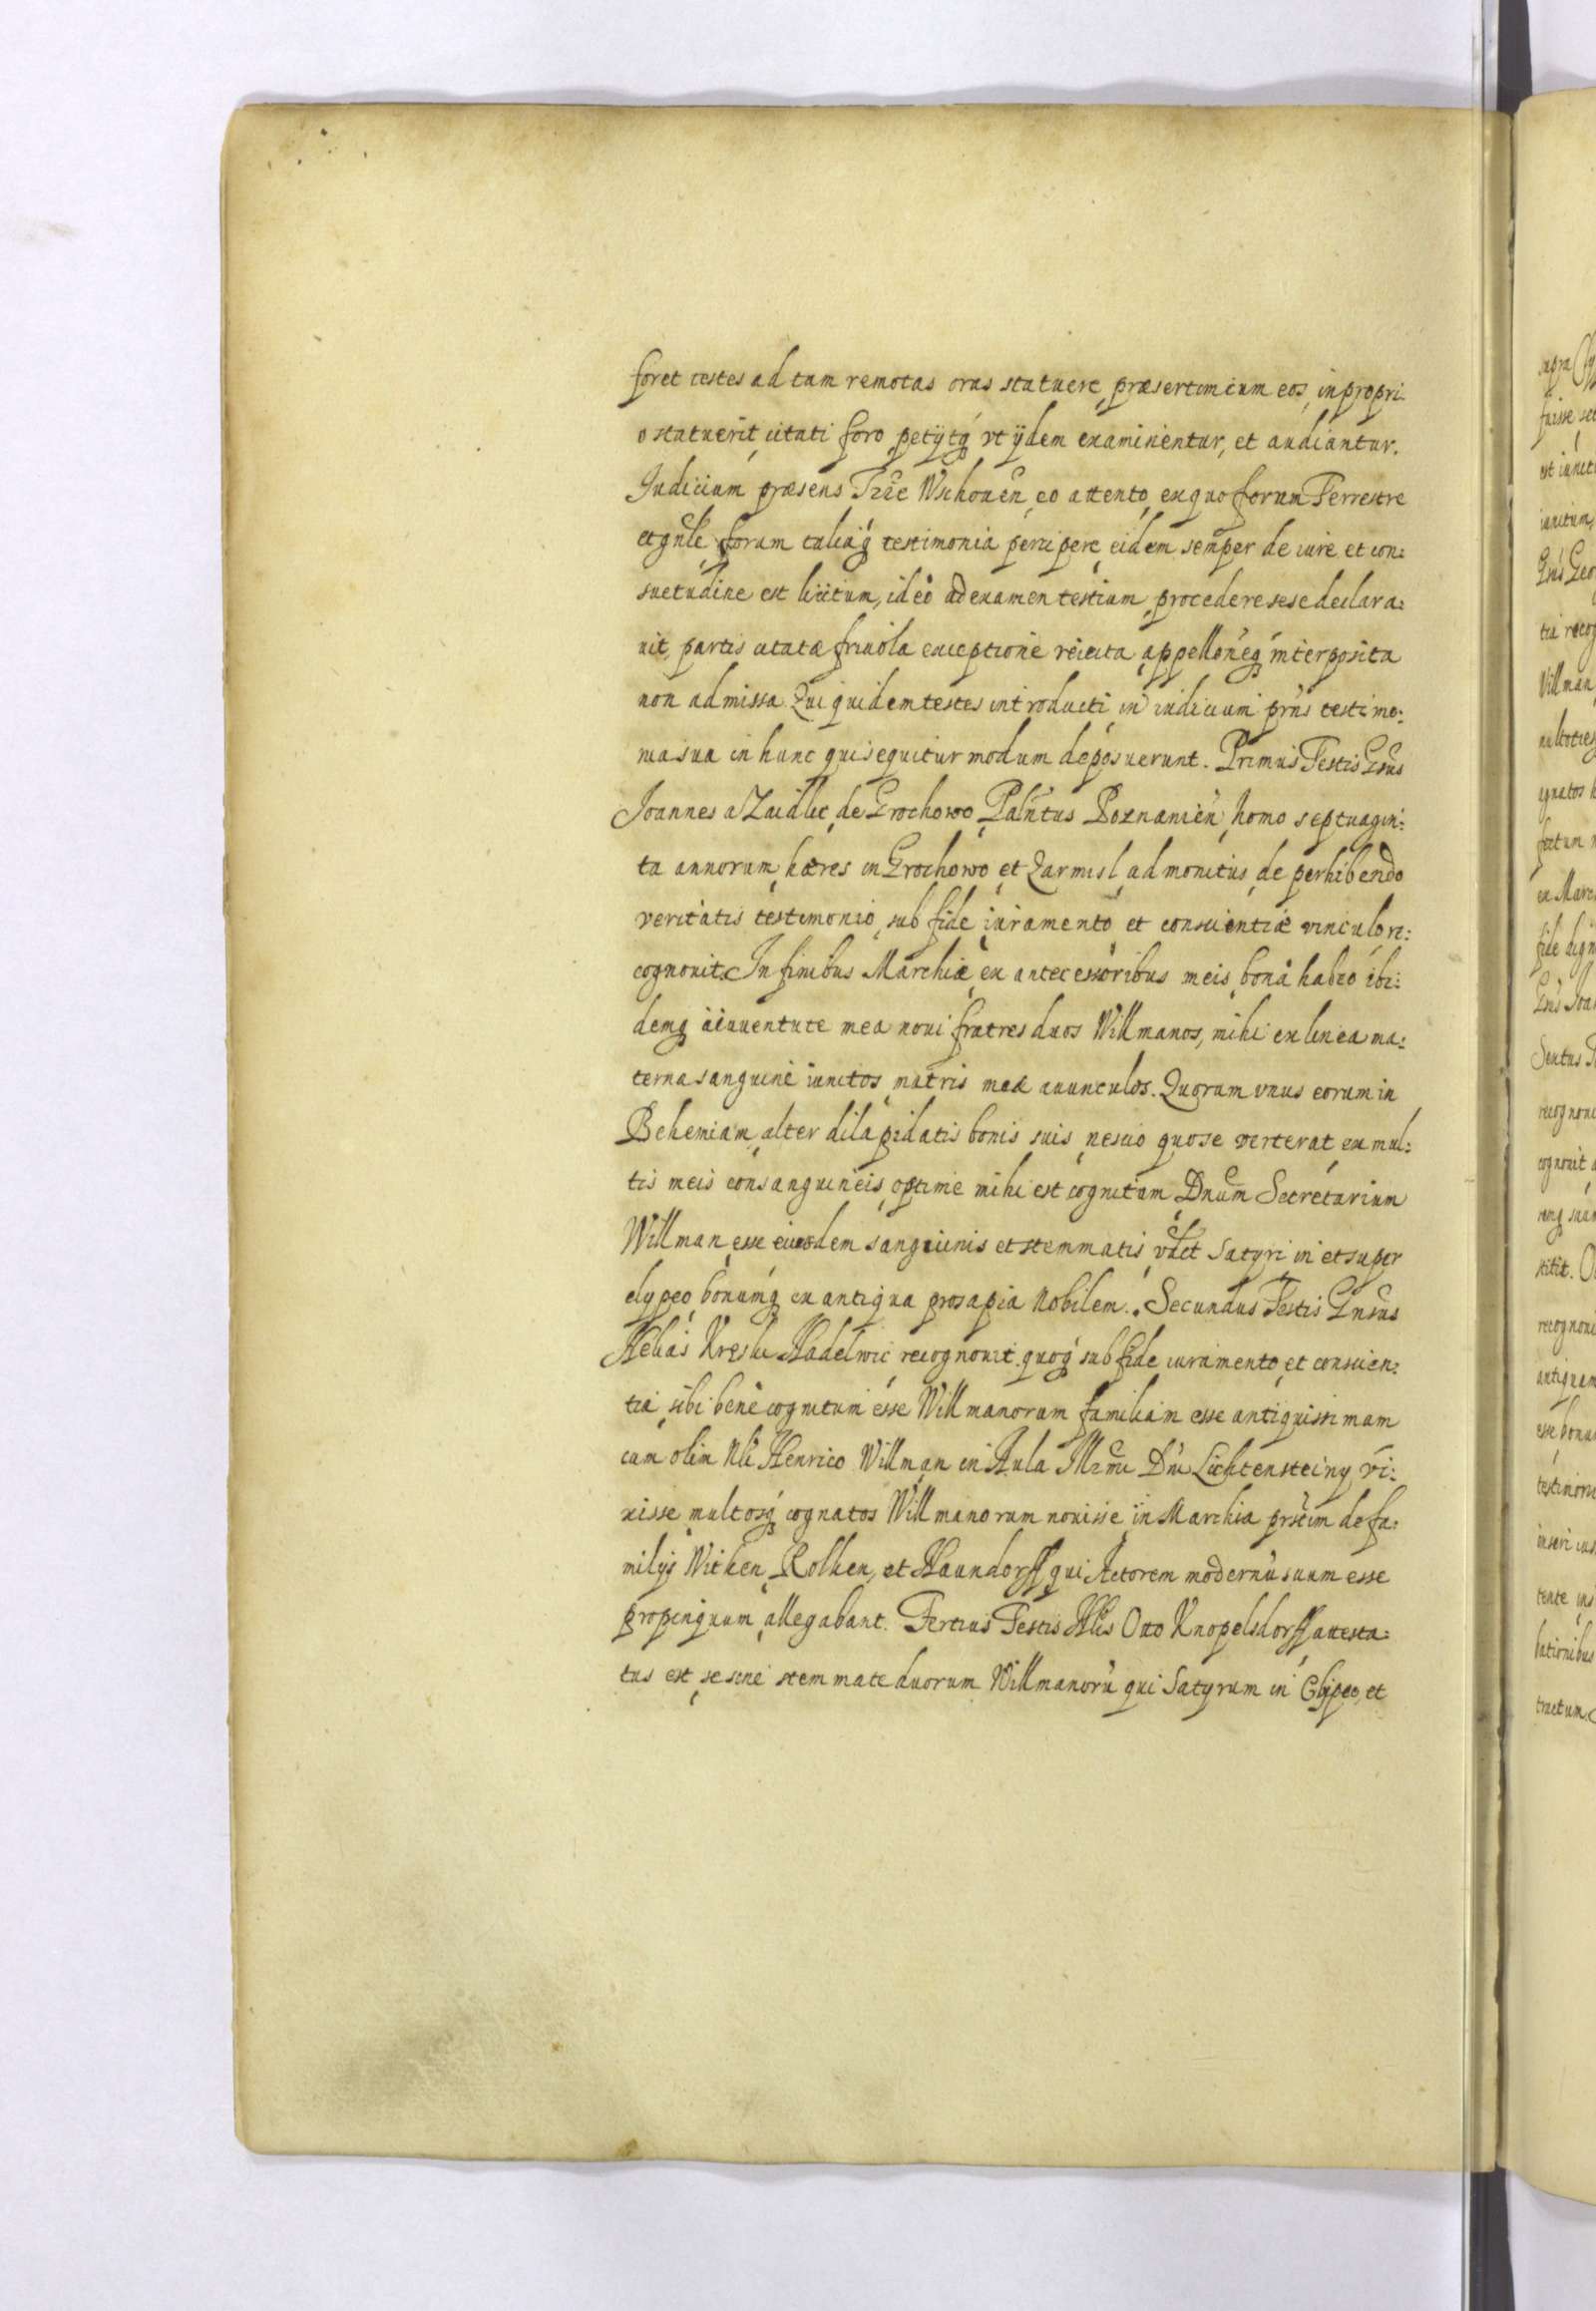 foret testes ad tam remotas oras statuere, præsertim cum eos, in propri-
o statuerit, citati foro, petÿtq́ vt ÿdem examinentur, et audiantur.
Iudicium præsens Trrẽ Wschouen̄, eo attento, ex quo forum Terrestre
et gnl̃e, forum taliaq́ testimonia percipere, eidem semper de iure et con:
suetudine est licitum, ideo ad examen testium, procedere sese declara:
uit, partis citatæ friuola exceptione reiecta, appellon̄eq́ interposita
non admissa. Qui quidem testes introducti, in iudicium prn̄s testimo:
nia sua in hunc qui sequitur modum deposuerunt. Primus Testis Gsũs
Joannes a Zaidlic, de Grochowo, Paln̄tus Poznanien̄, homo septuagin:
ta annorum, hæres in Grochowo, et Zarmisl, admonitus, de perhibendo
veritatis testimonio, sub fide, iuramento et conscientiæ vinculo re:
cognouit. In finibus Marchiæ, ex antecessoribus meis, bona habeo ibi:
demq́ a iuuentute mea noui fratres duos Willmanos, mihi ex linea ma:
terna sanguine iunctos, matris meæ auunculos. Quorum vnus eorum in
Bohemiam, alter dilapidatis bonis suis, nescio quo se verterat, ex mul:
tis meis consanguineis, optime mihi est cognitum, Dnũm Secretarium
Willman, esse eiusdem sanguinis et stemmatis, vdẽt Satyri in et super
clypeo, bonumq́ ex antiqua prosapia Nobilem. Secundus Testis Gnsũs
Helias Kreslu Hadelwic recognouit quoq́ sub fide, iuramento, et conscien:
tia, sibi bene cognitum esse Willmanorum familiam esse antiquissimam
cum olim Nli Henrico Willman in Aula Illrm̃i Dn̄i Lichtensteiny vi:
xisse multosq́ cognatos Willmanorum nouisse in Marchia prs̃tim de fa:
milÿs Witken, Rolken, et Haundorff, qui Actorem modernū suum esse
propinquum, allegabant. Tertius Testis Nlis Otto Knopelsdorff attesta:
tus est, se scire stemmate duorum Willmanorū qui Satyrum in Clÿpeo, et